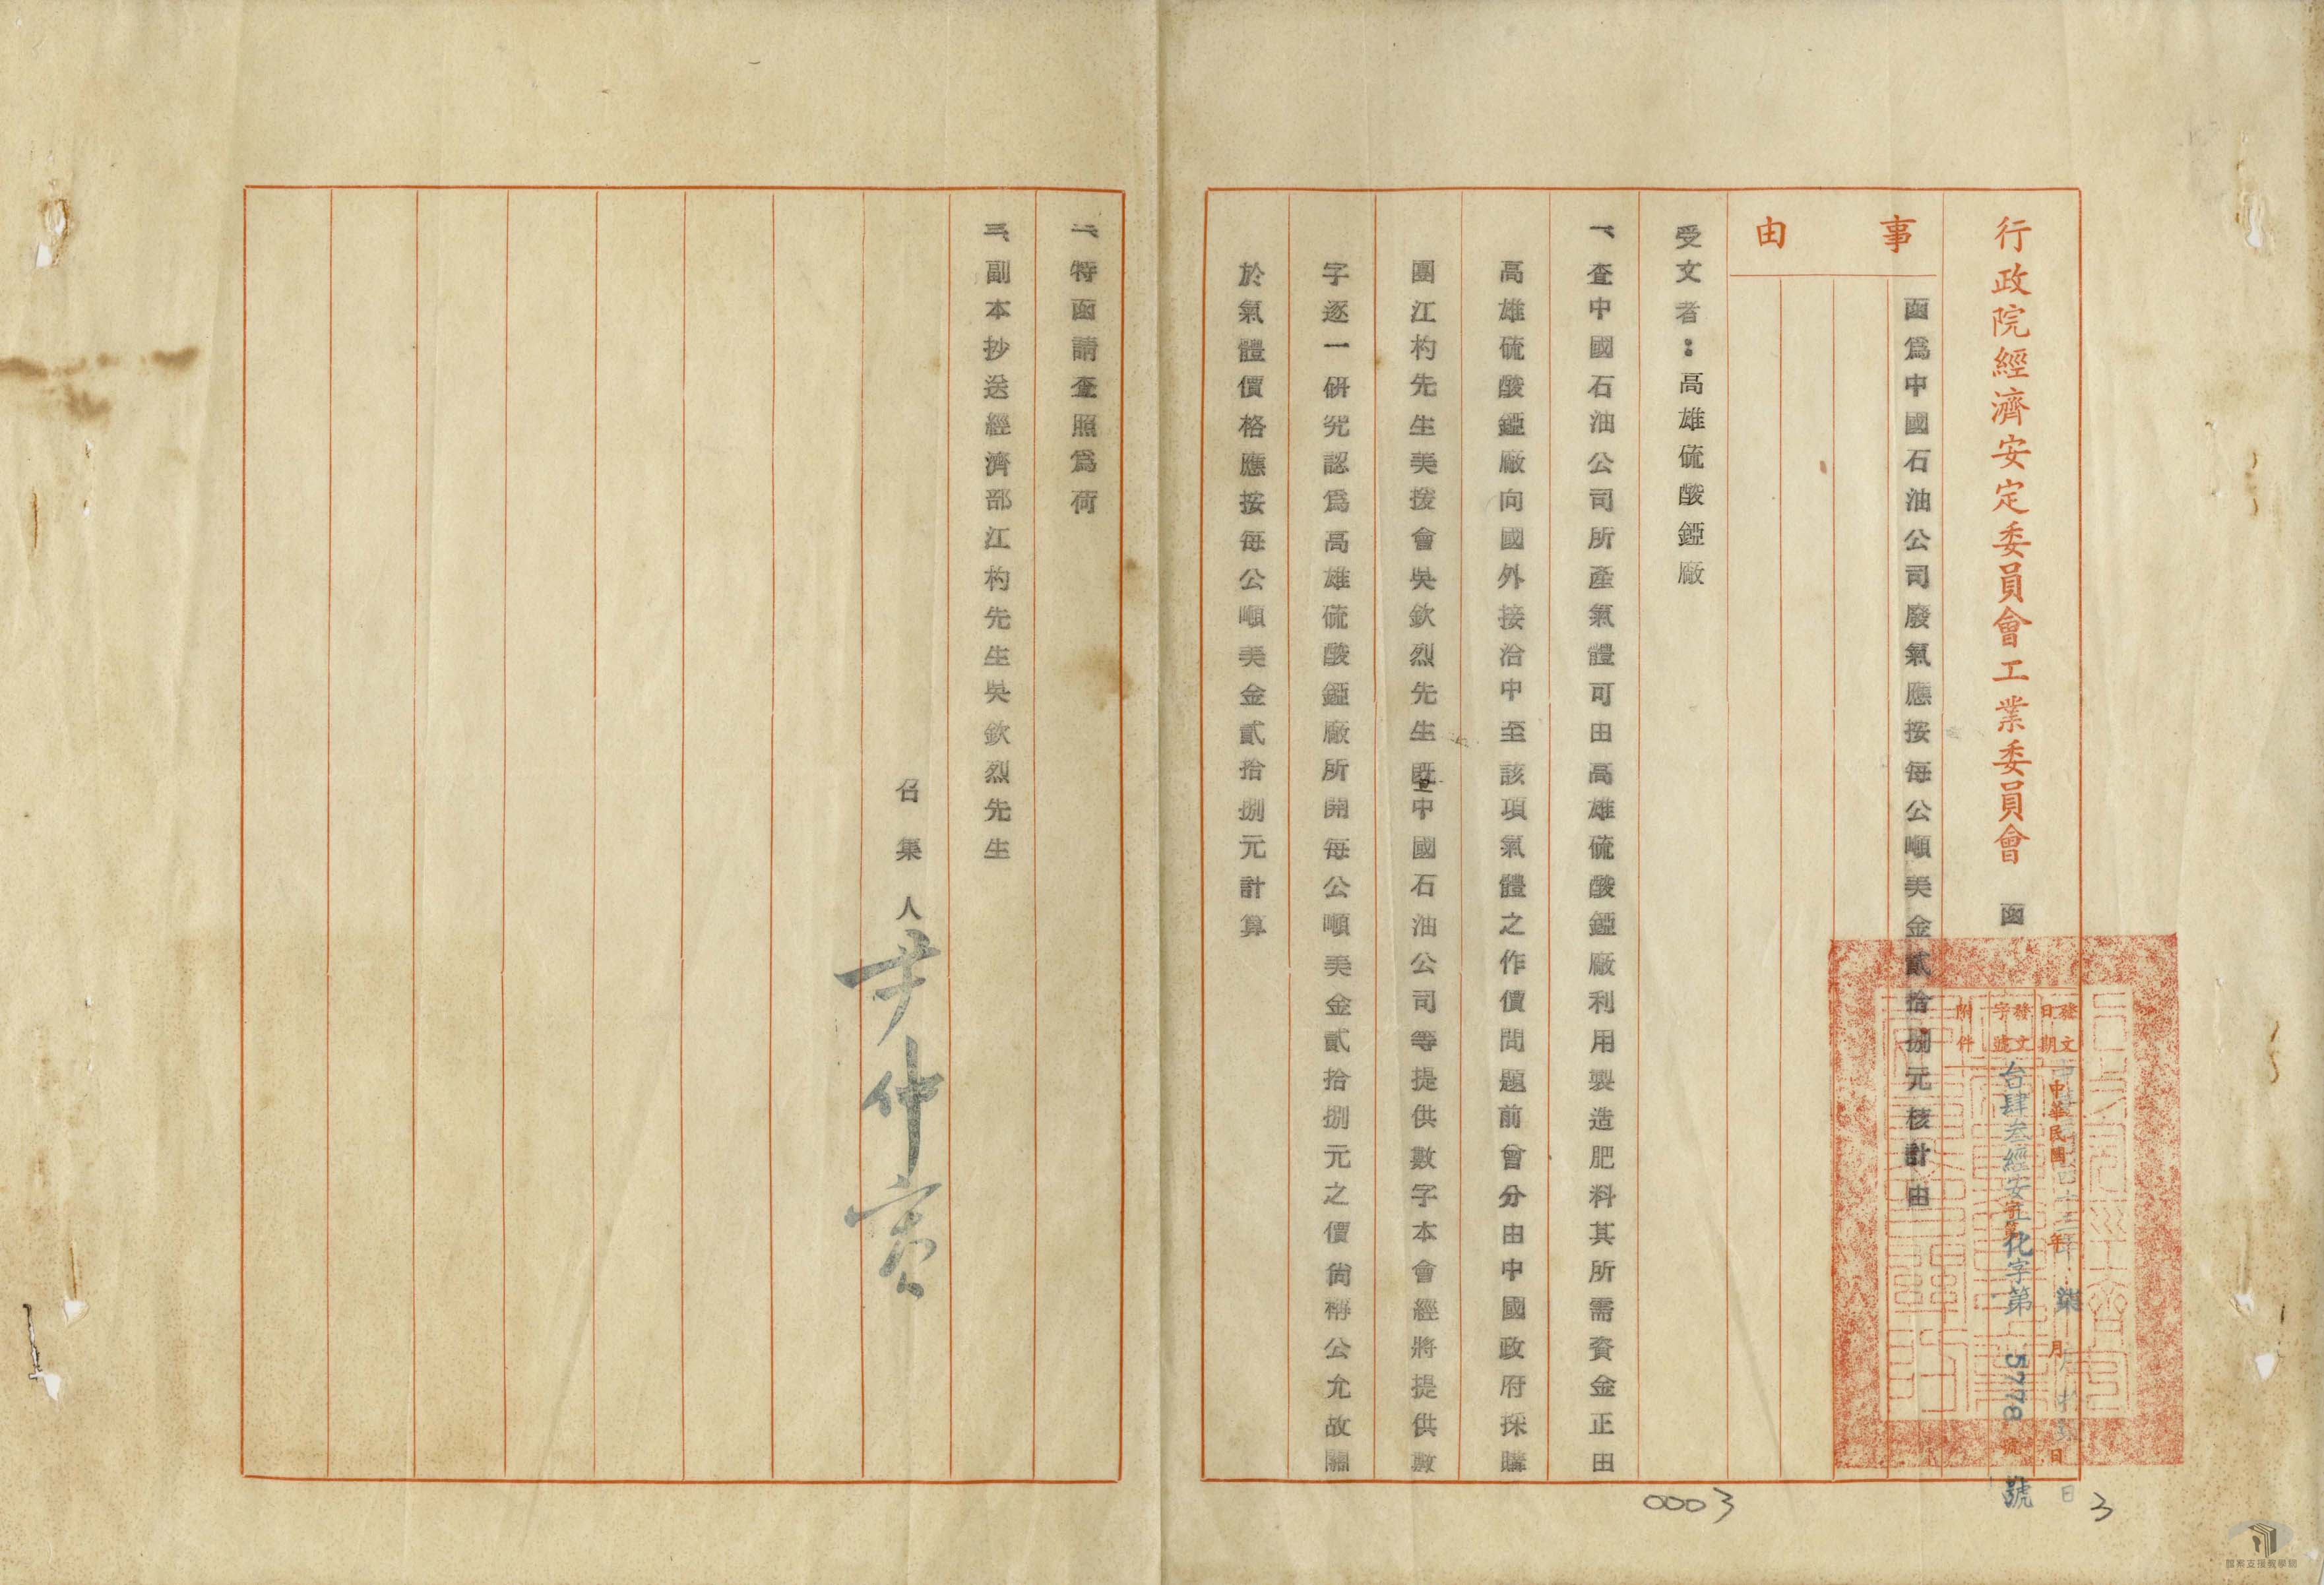 行政院經濟安定委員會工業委員會 函
發文日期 中華民國 年 柒 月 日
發文字號 台肆叁經安 化字第 5778 號
附件
事由
函爲中國石油公司廢氣應按每公噸美金貳拾捌元核計由
受文者：高雄硫酸錏廠
一、查中國石油公司所產氣體可由高雄硫酸錏廠利用製造肥料其所需資金正由
高雄硫酸錏廠向國外接洽中至該項氣體之作價問題前曾分由中國政府採購
團江杓先生美援會吳欽烈先生曁中國石油公司等提供數字本會經將提供數
字逐一研究認爲高雄硫酸錏廠所開每公噸美金貳拾捌元之價尙稱公允故關
於氣體價格應按每公噸美金貳拾捌元計算
二、特函請查照爲荷
三、副本抄送經濟部江杓先生吳欽烈先生
召集人 尹仲容
0003
3
檔案支援教學網